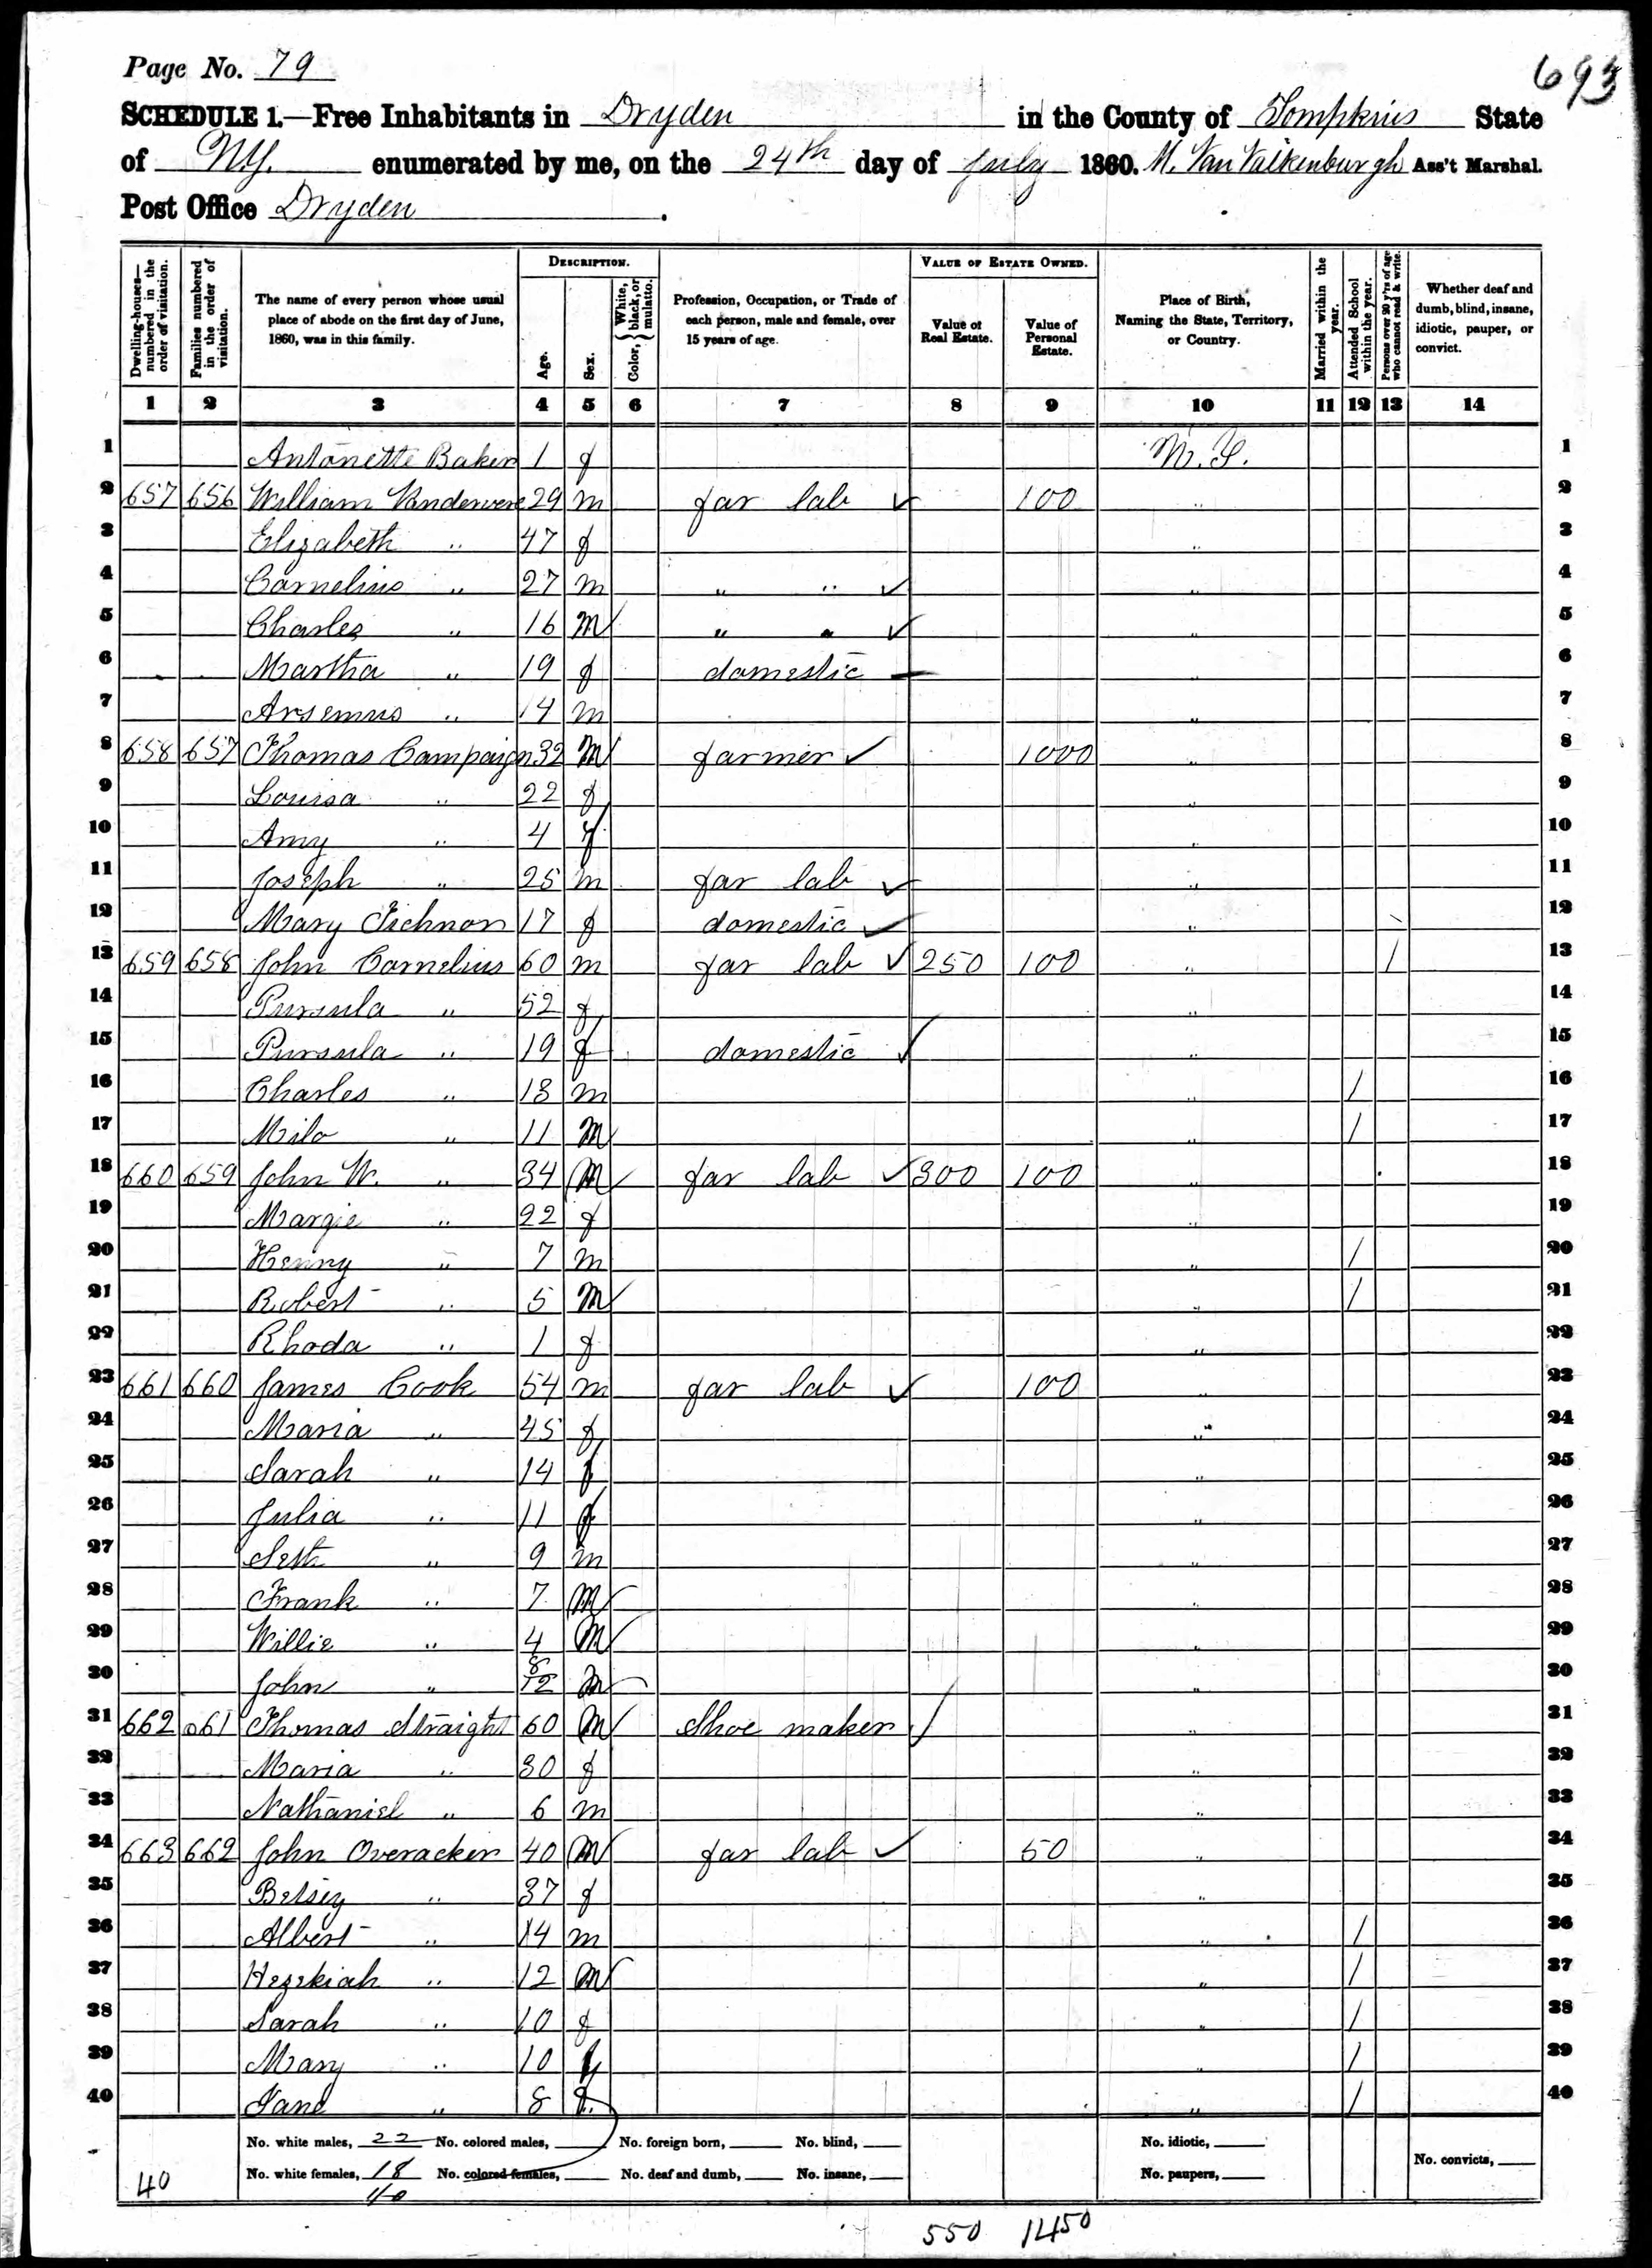 Page No. 79
693
SCHEDULE 1.—Free Inhabitants in Dryden in the County of Tompkins State
of NY. enumerated by me, on the 24th day of July 1860. M. Van Valkenburgh Ass't Marshal.
Post Office Dryden.
Dwelling-houses—numbered in the order of visitation.
Families numbered in the order of visitation.
The name of every person whose usual place of abode on the first day of June, 1860, was in this family.
DESCRIPTION.
Age.
Sex.
Color, } White, black, or mulatto.
Profession, Occupation, or Trade of each person, male and female, over 15 years of age.
VALUE OF ESTATE OWNED.
Value of Real Estate.
Value of Personal Estate.
Place of Birth, Naming the State, Territory, or Country.
Married within the year.
Attended School within the year.
Persons over 20 y'rs of age who cannot read & write.
Whether deaf and dumb, blind, insane, idiotic, pauper, or convict.
1 2 3 4 5 6 7 8 9 10 11 12 13 14
1 Antonette Baker 1 f N.Y. 1
2 657 656 William Vandervere 29 m far lab ✓ 100 " 2
3 Elizabeth " 47 f " 3
4 Cornelius " 27 m " " ✓ " 4
5 Charles " 16 m " " ✓ " 5
6 Martha " 19 f domestic — " 6
7 Arsemus " 14 m " 7
8 658 657 Thomas Campaign 32 m farmer ✓ 1000 " 8
9 Louisa " 22 f " 9
10 Amy " 4 f " 10
11 Joseph " 25 m far lab ✓ " 11
12 Mary 17 f domestic ✓ " 12
13 659 658 John Cornelius 60 m far lab ✓ 250 100 " / 13
14 Pursula " 52 f " 14
15 Pursula " 19 f domestic ✓ " 15
16 Charles " 13 m " / 16
17 Milo " 11 m " / 17
18 660 659 John W. " 34 m far lab ✓ 300 100 " 18
19 Margie " 22 f " 19
20 Henry " 7 m " / 20
21 Robert " 5 m " / 21
22 Rhoda " 1 f " 22
23 661 660 James Cook 54 m far lab ✓ 100 " 23
24 Maria " 45 f " 24
25 Sarah " 14 f " 25
26 Julia " 11 f " 26
27 Seth " 9 m " 27
28 Frank " 7 m " 28
29 Willie " 4 m " 29
30 John " 8/12 m " 30
31 662 661 Thomas Straight 60 m Shoe maker / " 31
32 Maria " 30 f " 32
33 Nathaniel " 6 m " 33
34 663 662 John Overacker 40 m far lab ✓ 50 " 34
35 Betsey " 37 f " 35
36 Albert " 14 m " / 36
37 Hezekiah " 12 m " / 37
38 Sarah " 10 f " / 38
39 Mary " 10 f " / 39
40 Jane " 8 f " / 40
No. white males, 22 No. colored males, No. foreign born, No. blind, No. idiotic,
40 No. white females, 18 No. colored females, No. deaf and dumb, No. insane, No. paupers, No. convicts,
40
550 1450